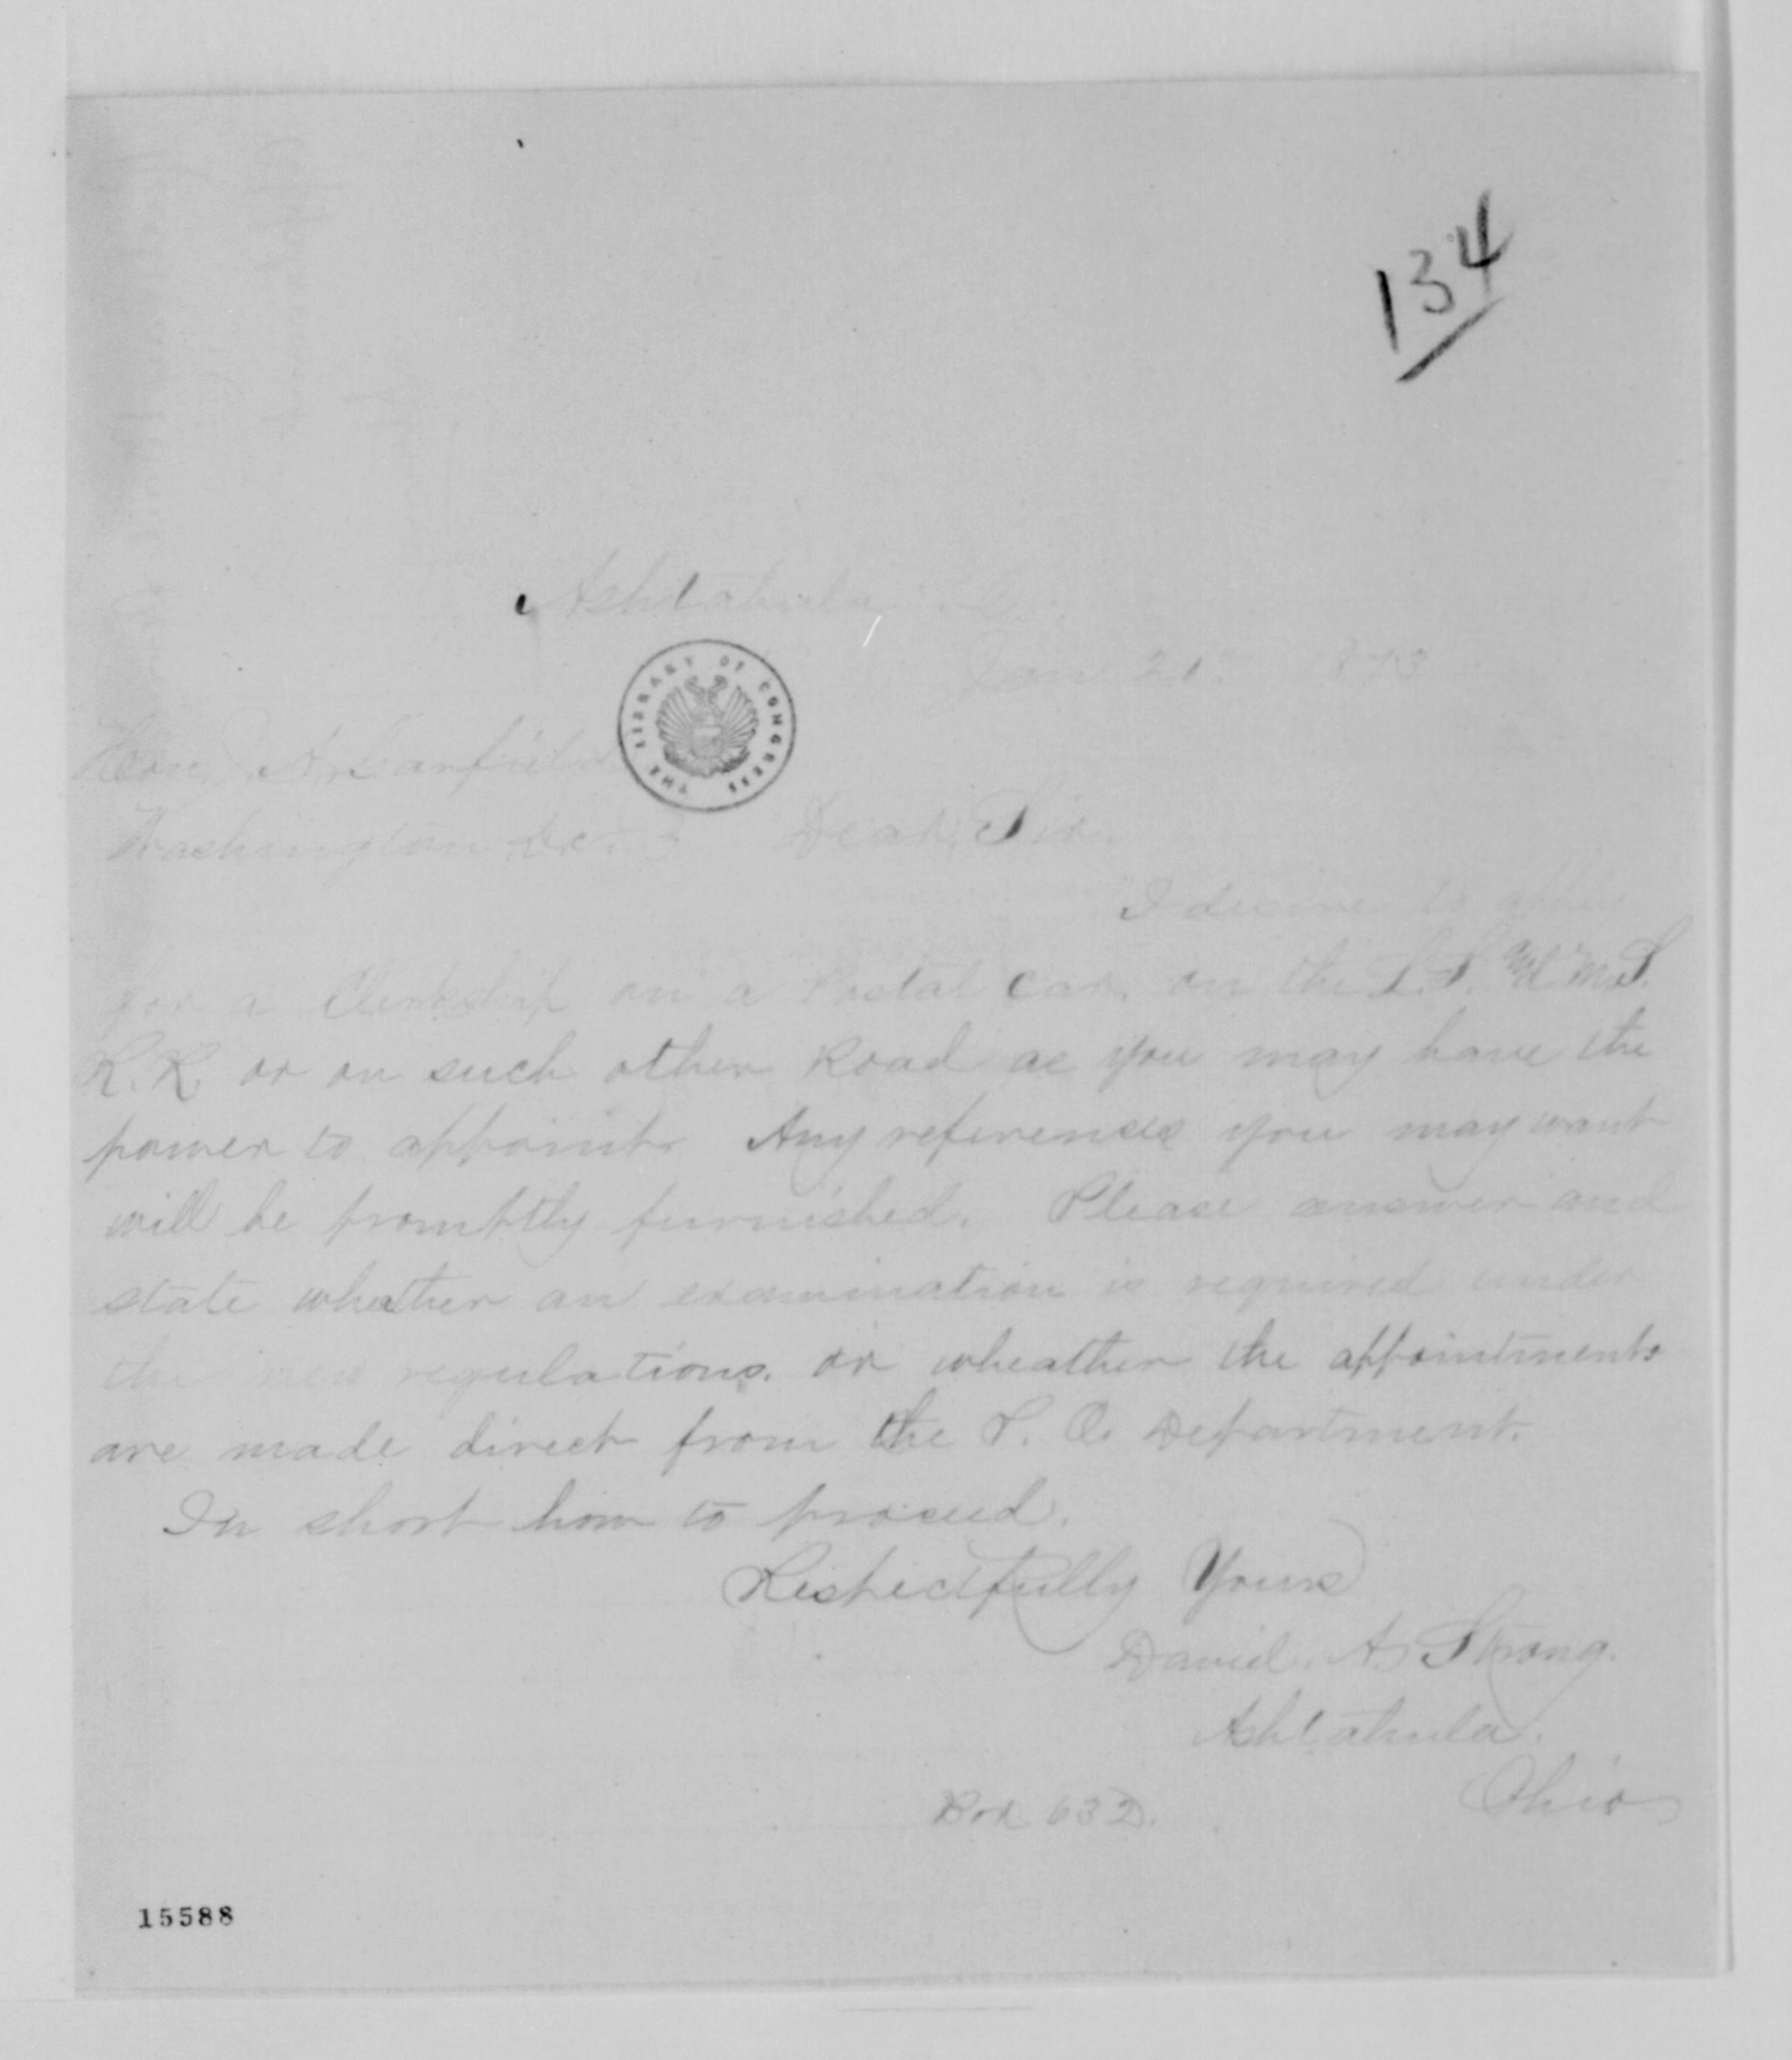 134
Ashtabula O.
Jan 21st 1873
Hon J. A. Garfield
THE LIBRARY OF CONGRESS
Washington D.C. Dear Sir.
I desire to apply
for a Clerkship on a Postal Car, on the L.S. and M.S.
R.R. or on such other Road as you may have the
power to appoint. Any references you may want
will be promptly furnished. Please answer and
state wheather an examination is required under
the new regulations. or wheather the appointments
are made direct from the P. O. Department.
In short how to proceed.
Respectfully Yours
David. A. Strong.
Ashtabula.
Ohio
Box 632.
15588